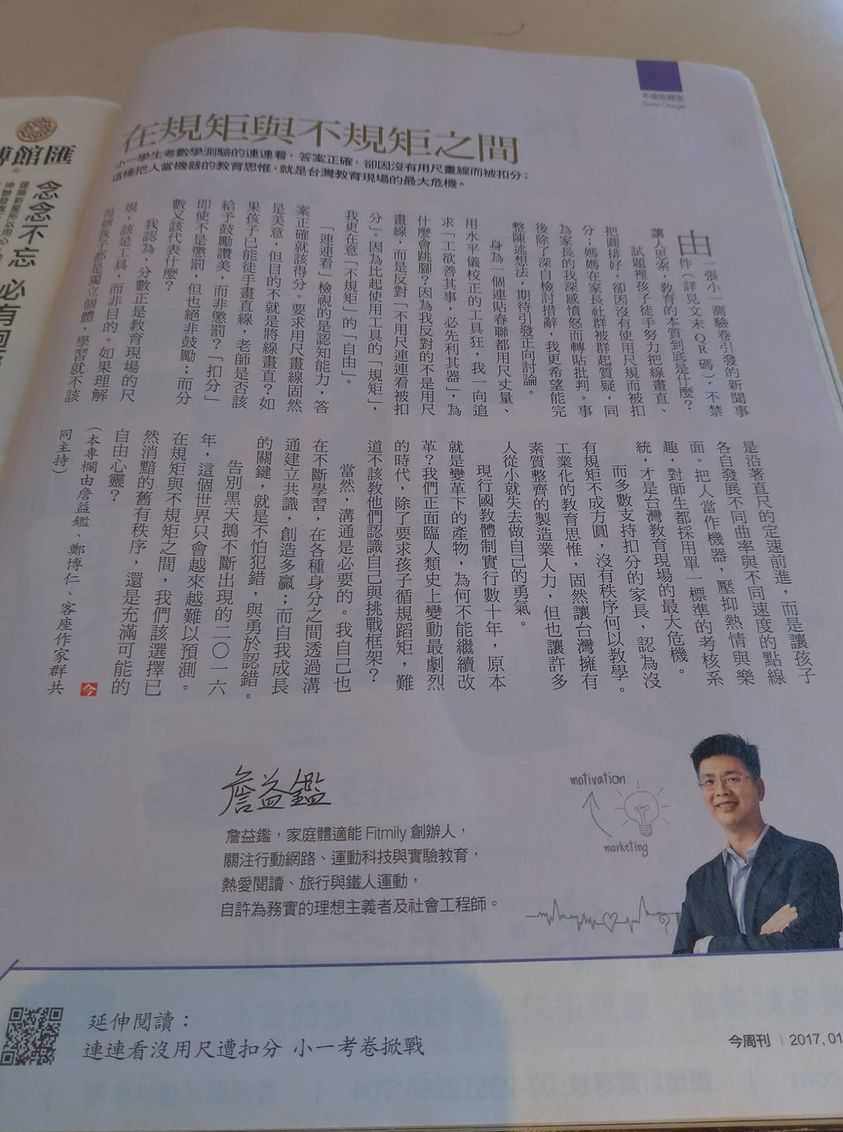 不連續躍進
Game Changer
在規矩與不規矩之間
小一學生考數學測驗的連連看，答案正確，卻因沒有用尺畫線而被扣分；
這種把人當機器的教育思惟，就是台灣教育現場的最大危機。
由一張小一測驗卷引發的新聞事
件（詳見文末QR碼），不禁
讓人思索，教育的本質到底是什麼？
試題裡孩子徒手努力把線畫直、
把圖排好，卻因沒有使用尺規而被扣
分；媽媽在家長社群被群起質疑，同
為家長的我深感憤怒而轉貼批判。事
後除了深自檢討措辭，我更希望能完
整陳述想法，期待引發正向討論。
身為一個連貼春聯都用尺丈量、
用水平儀校正的工具狂，我一向追
求「工欲善其事，必先利其器」，為
什麼會跳腳？因為我反對的不是用尺
畫線，而是反對「不用尺連連看被扣
分」。因為比起使用工具的「規矩」，
我更在意「不規矩」的「自由」。
「連連看」檢視的是認知能力，答
案正確就該得分。要求用尺畫線固然
是美意，但目的不就是將線畫直？如
果孩子已能徒手畫直線，老師是否該
給予鼓勵讚美，而非懲罰？「扣分」
即使不是懲罰，但也絕非鼓勵；而分
數又該代表什麼？
我認為，分數正是教育現場的尺
規，該是工具，而非目的。如果理解
每個孩子都是獨立個體，學習就不該
是沿著直尺的定速前進，而是讓孩子
各自發展不同曲率與不同速度的點線
面。把人當作機器，壓抑熱情與樂
趣，對師生都採用單一標準的考核系
統，才是台灣教育現場的最大危機。
而多數支持扣分的家長，認為沒
有規矩不成方圓，沒有秩序何以教學。
工業化的教育思惟，固然讓台灣擁有
素質整齊的製造業人力，但也讓許多
人從小就失去做自己的勇氣。
現行國教體制實行數十年，原本
就是變革下的產物，為何不能繼續改
革？我們正面臨人類史上變動最劇烈
的時代，除了要求孩子循規蹈矩，難
道不該教他們認識自己與挑戰框架？
當然，溝通是必要的。我自己也
在不斷學習，在各種身分之間透過溝
通建立共識，創造多贏；而自我成長
的關鍵，就是不怕犯錯，與勇於認錯。
告別黑天鵝不斷出現的二〇一六
年，這個世界只會越來越難以預測。
在規矩與不規矩之間，我們該選擇已
然消黯的舊有秩序，還是充滿可能的
自由心靈？
（本專欄由詹益鑑、鄭博仁、客座作家群共
同主持） 今
詹益鑑
詹益鑑，家庭體適能 Fitmily 創辦人，
關注行動網路、運動科技與實驗教育，
熱愛閱讀、旅行與鐵人運動，
自許為務實的理想主義者及社會工程師。
motivation
marketing
延伸閱讀：
連連看沒用尺遭扣分 小一考卷掀戰
今周刊 | 2017, 01
博館匯
念念不忘
必有回